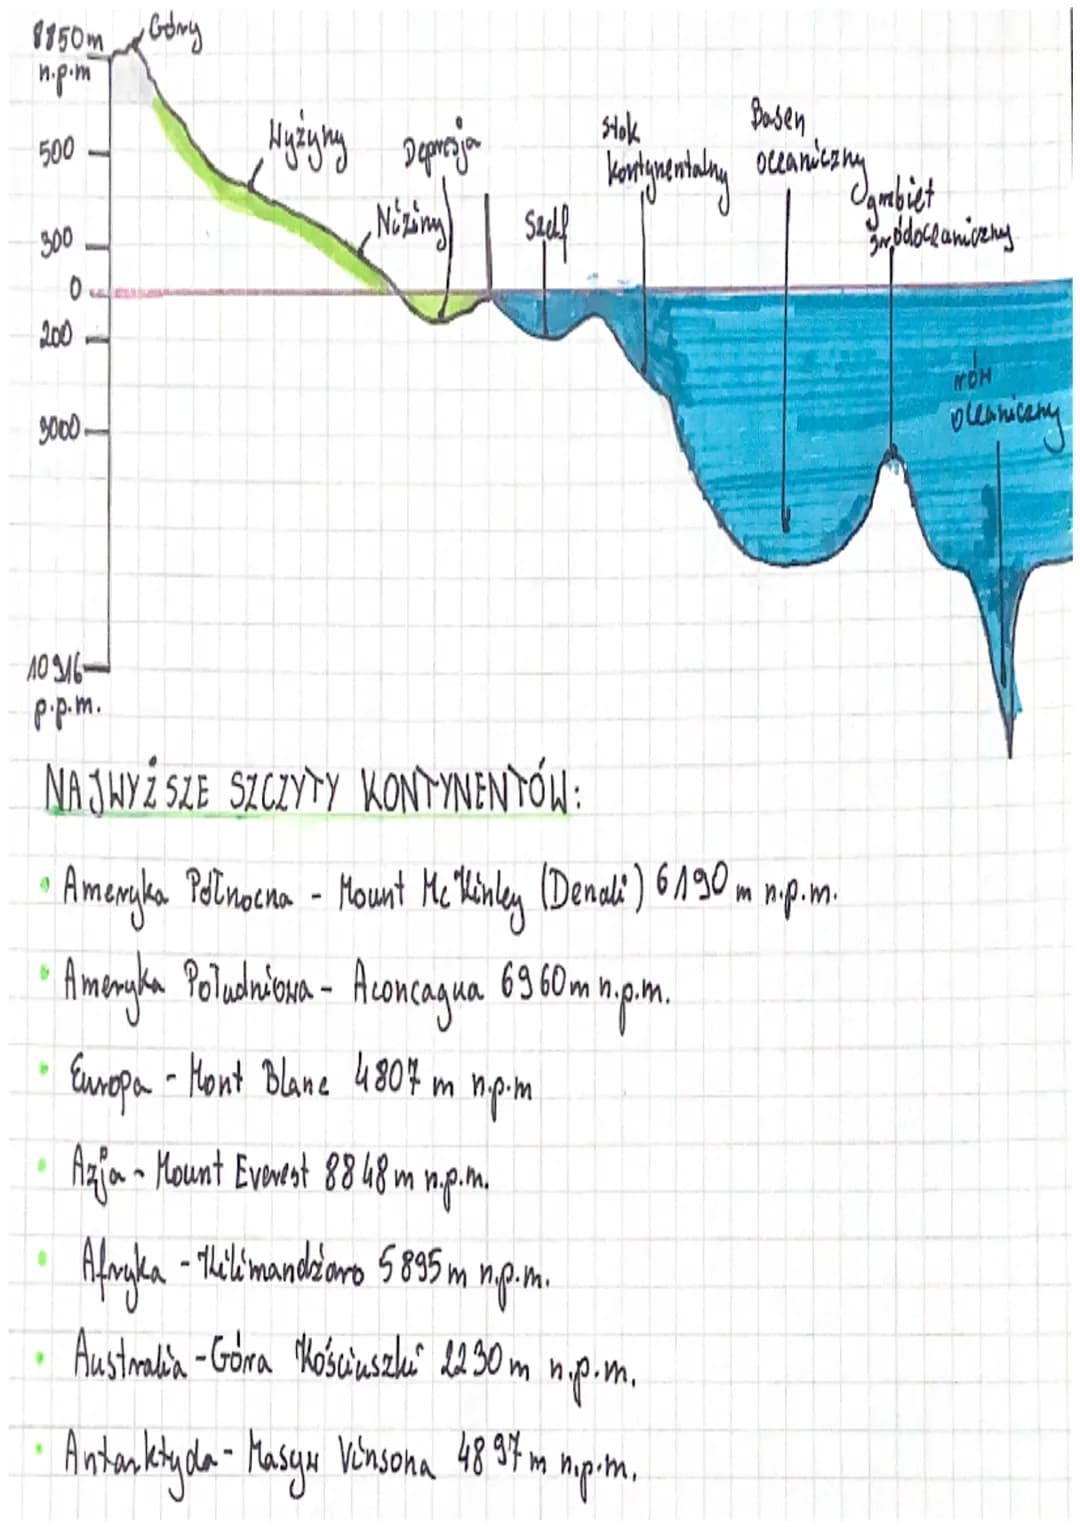 8850m
n.p.m
Góry
500
300
0
200
3000
10 916
p.p.m.
Wyżyny
Niziny
Depresja
Szelf
Stok
kontynentalny
Basen
oceaniczny
grzbiet
śródoceaniczny
rów
oceaniczny
NAJWYŻSZE SZCZYTY KONTYNENTÓW:
• Ameryka Północna - Mount McKinley (Denali) 6190 m n.p.m.
• Ameryka Południowa - Aconcagua 6960 m n.p.m.
• Europa - Mont Blanc 4807 m n.p.m
• Azja - Mount Everest 8848 m n.p.m.
• Afryka - Kilimandżaro 5895 m n.p.m.
• Australia - Góra Kościuszki 2230 m n.p.m.
• Antarktyda - Masyw Vinsona 4897 m n.p.m.